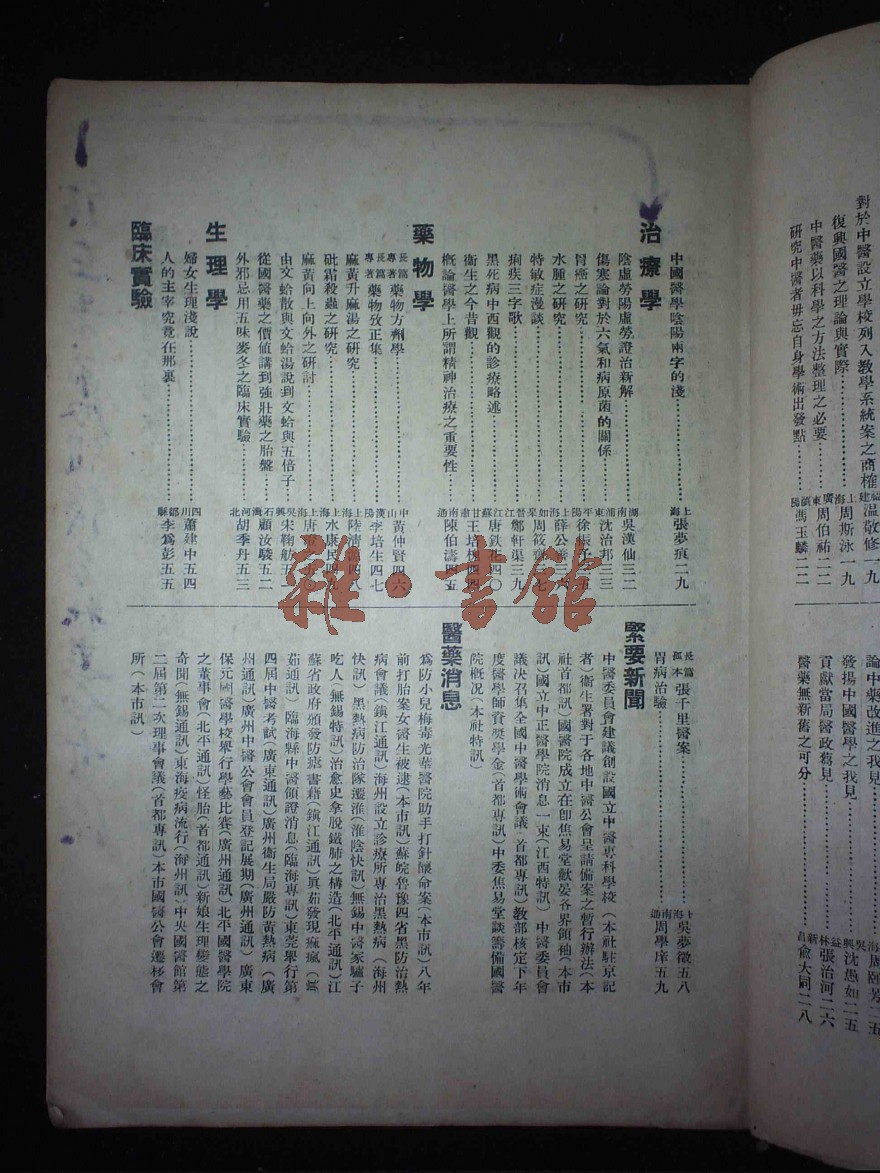 對於中醫設立學校列入教學系統案之商榷……福建溫敬修一九
復興國醫之理論與實際……上海周斯泳一九
中醫藥以科學之方法整理之必要……廣東周伯祐二二
研究中醫者毋忘自身學術出發點……鎮陽馮玉麟二二
論中藥改進之我見
發揚中國醫學之我見……吳興沈愚如二五
貢獻當局醫政蒭見……益林張治河二六
醫藥無新舊之可分……新昌俞大同二八
中國醫學陰陽兩字的淺……上海張夢痕二九
治療學
陰虛勞陽虛勞證治新解……湖南吳漢仙三二
傷寒論對於六氣和病原菌的關係……浦東沈治邦三三
胃癌之研究……平陽徐振
水腫之研究……上海薛公善三六
特敏症漫談……如皋周筱齋三七
痢疾三字歌……晉江鄭軒渠三九
黑死病中西觀的診療略述……江蘇唐鉄花四〇
衞生之今昔觀……甘肅王培槐四四
概論醫學上所謂精神治療之重要性……南通陳伯濤四五
藥物學
長篇專著藥物方劑學……中山黃仲賢四六
長篇專著藥物攷正集……漢陽李培生四七
麻黃升麻湯之研究……上海陸清源四八
砒霜殺蟲之研究……上海水康民四九
麻黃向上向外之研討……上海唐
由文蛤散與文蛤湯說到文蛤與五倍子……吳興宋鞠舫五一
從國醫藥之價值講到強壯藥之胎盤……石灣顧汝駿五二
外邪忌用五味麥冬之臨床實驗……河北胡季丹五三
生理學
婦女生理淺說……四川蕭建中五四
人的主宰究竟在那裏……鄒縣李爲彭五五
臨床實驗
長篇孤本張千里醫案……上海吳夢徵五八
胃病治驗……南通周學庠五九
緊要新聞
中醫委員會建議創設國立中醫專科學校(本社駐京記
者)衞生署對于各地中醫公會呈請備案之暫行辦法(本
社首都訊)國醫院成立在卽焦易堂歡宴各界領袖(本市
訊)國立中正醫學院消息一束(江西特訊)中醫委員會
議决召集全國中醫學術會議(首都專訊)敎部核定下年
度醫學師資奬學金(首都專訊)中委焦易堂談籌備國醫
院槪况(本社特訊)
醫藥消息
爲防小兒梅毒光華醫院助手打針釀命案(本市訊)八年
前打胎案女醫生被逮(本市訊)蘇皖魯豫四省黑防治熱
病會議(鎮江通訊)海州設立診療所專治黑熱病(海州
快訊)黑熱病防治隊遷淮(淮陰快訊)無錫中醫家驢子
吃人(無錫特訊)治愈史拿脫鐵肺之構造(北平通訊)江
蘇省政府頒發防疫書籍(鎮江通訊)眞茹發現瘋瘋(眞
茹通訊)臨海縣中醫領證消息(臨海專訊)東莞舉行第
四屆中醫考試(廣東通訊)廣州衞生局嚴防黃熱病(廣
州通訊)廣州中醫公會會員登記展期(廣州通訊)廣東
保元國醫學校舉行學藝比賽(廣州通訊)北平國醫學院
之董事會(北平通訊)怪胎(首都通訊)新娘生理變態之
奇聞(無錫通訊)東海疫病流行(海州訊)中央國醫館第
二屆第二次理事會議(首都專訊)本市國醫公會遷移會
所(本市訊)
雜·書館